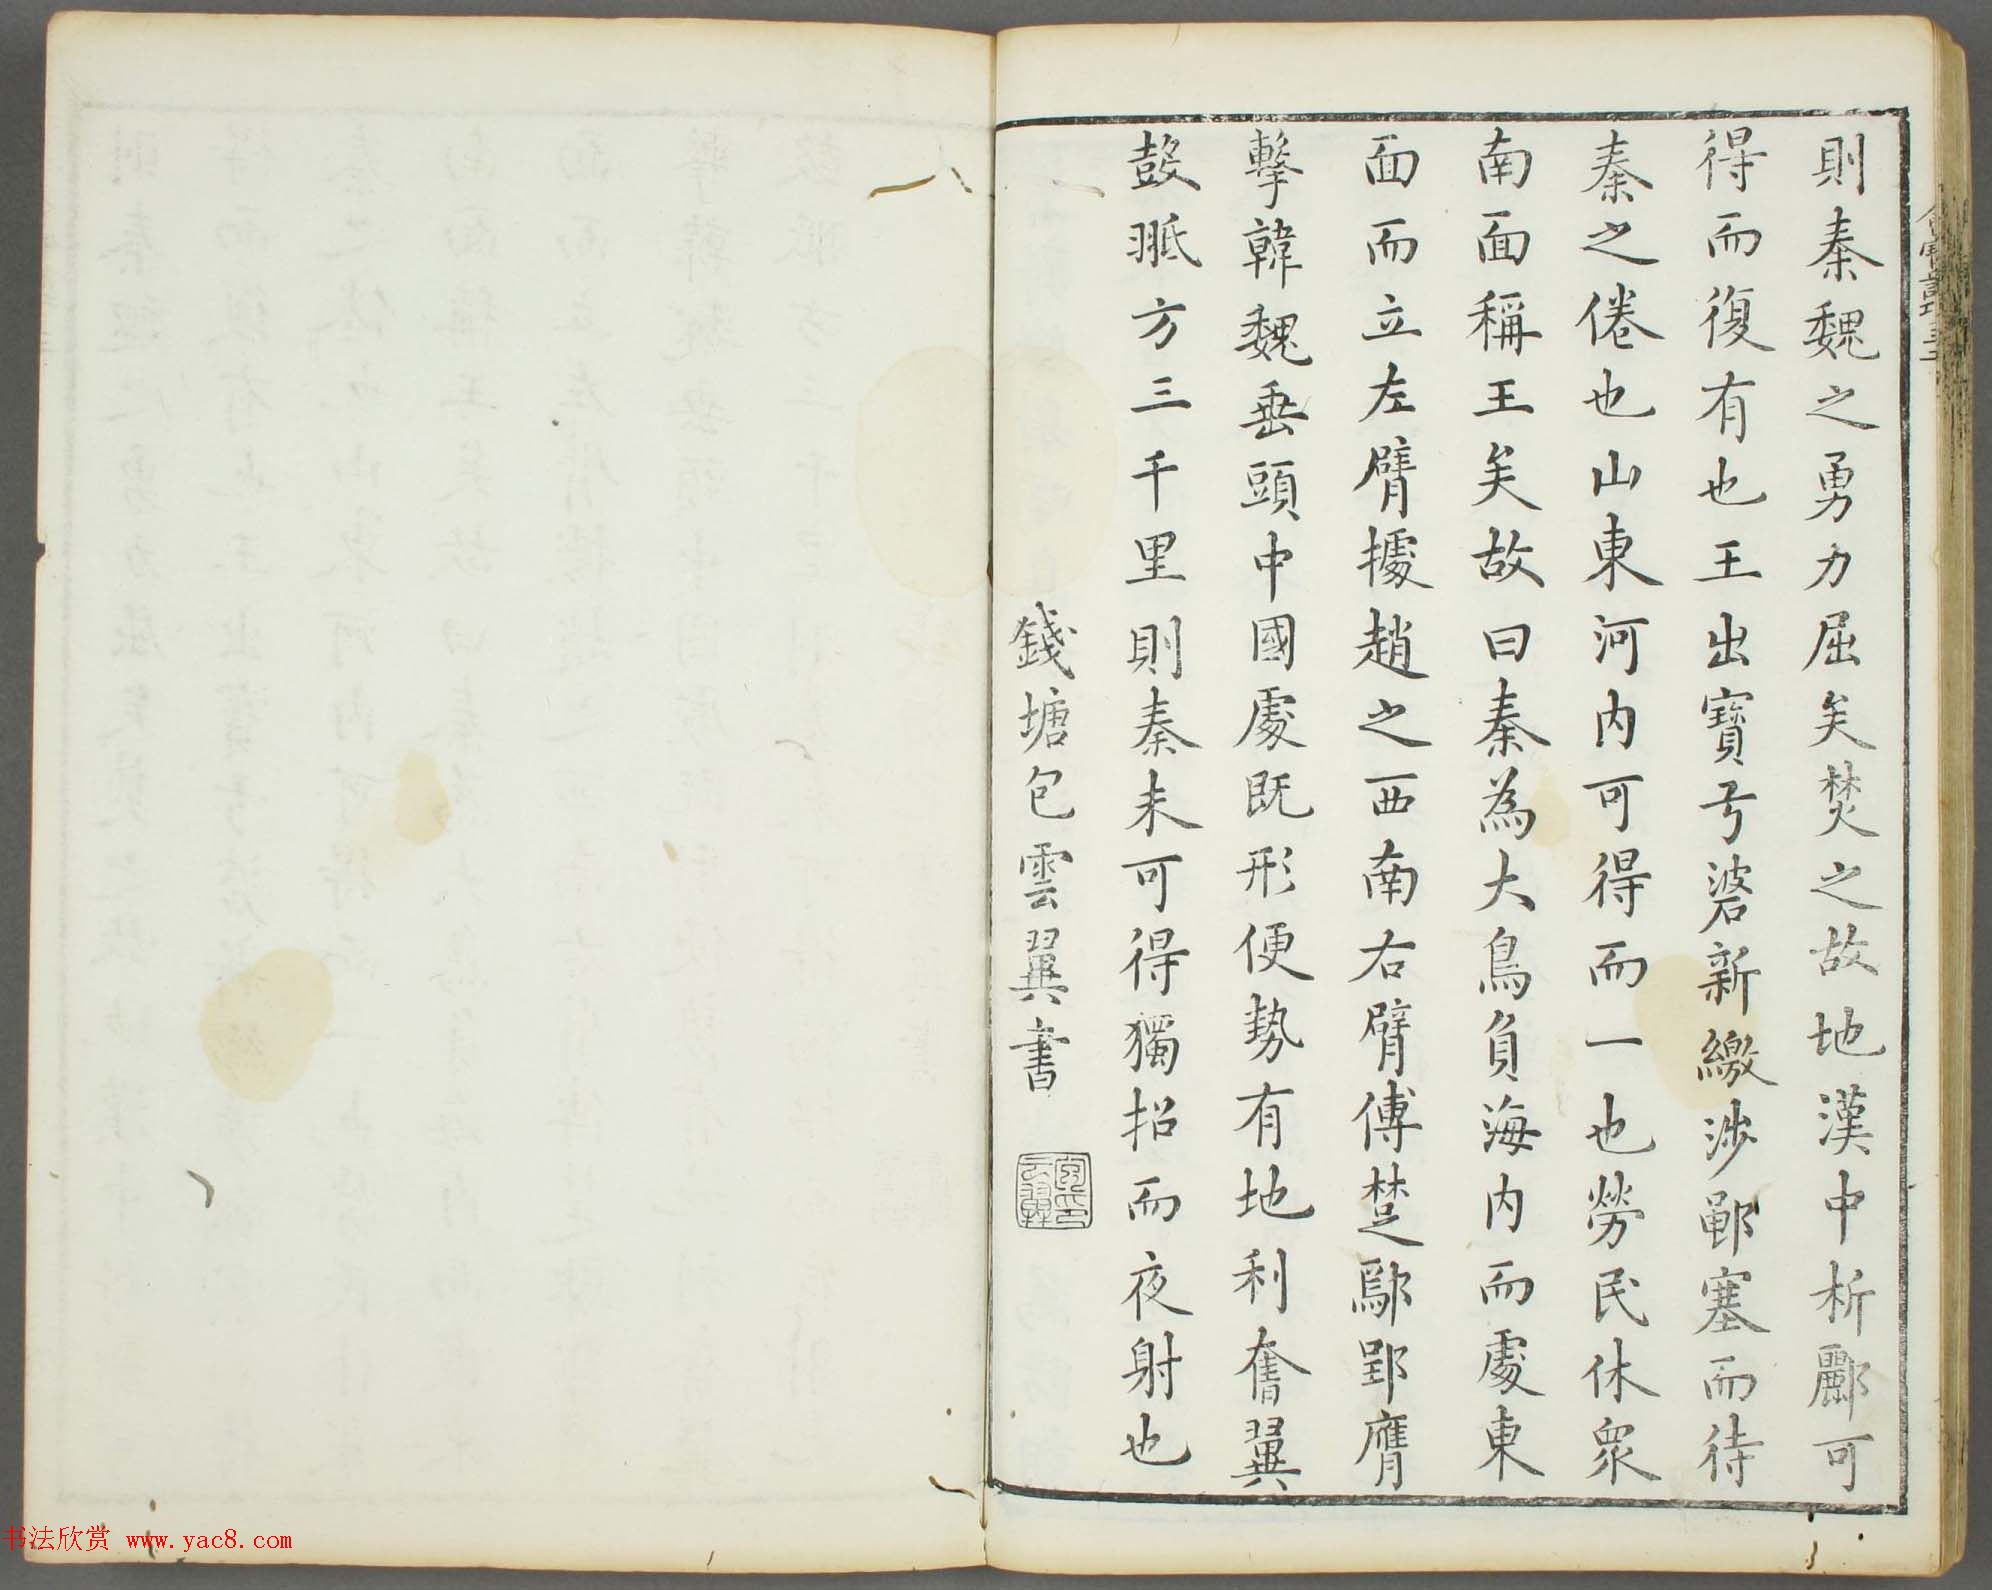 則秦魏之勇力屈矣焚之故地漢中析酈可
得而復有也王出寶弓碆新繳涉鄳塞而待
秦之倦也山東河内可得而一也勞民休眾
南面稱王矣故曰秦為大鳥負海内而處東
面而立左臂據趙之西南右臂傅楚鄢郢膺
擊韓魏垂頭中國處既形便勢有地利奮翼
鼓䎗方三千里則秦未可得獨招而夜射也
錢塘包雲翼書
书法欣赏 www.yac8.com